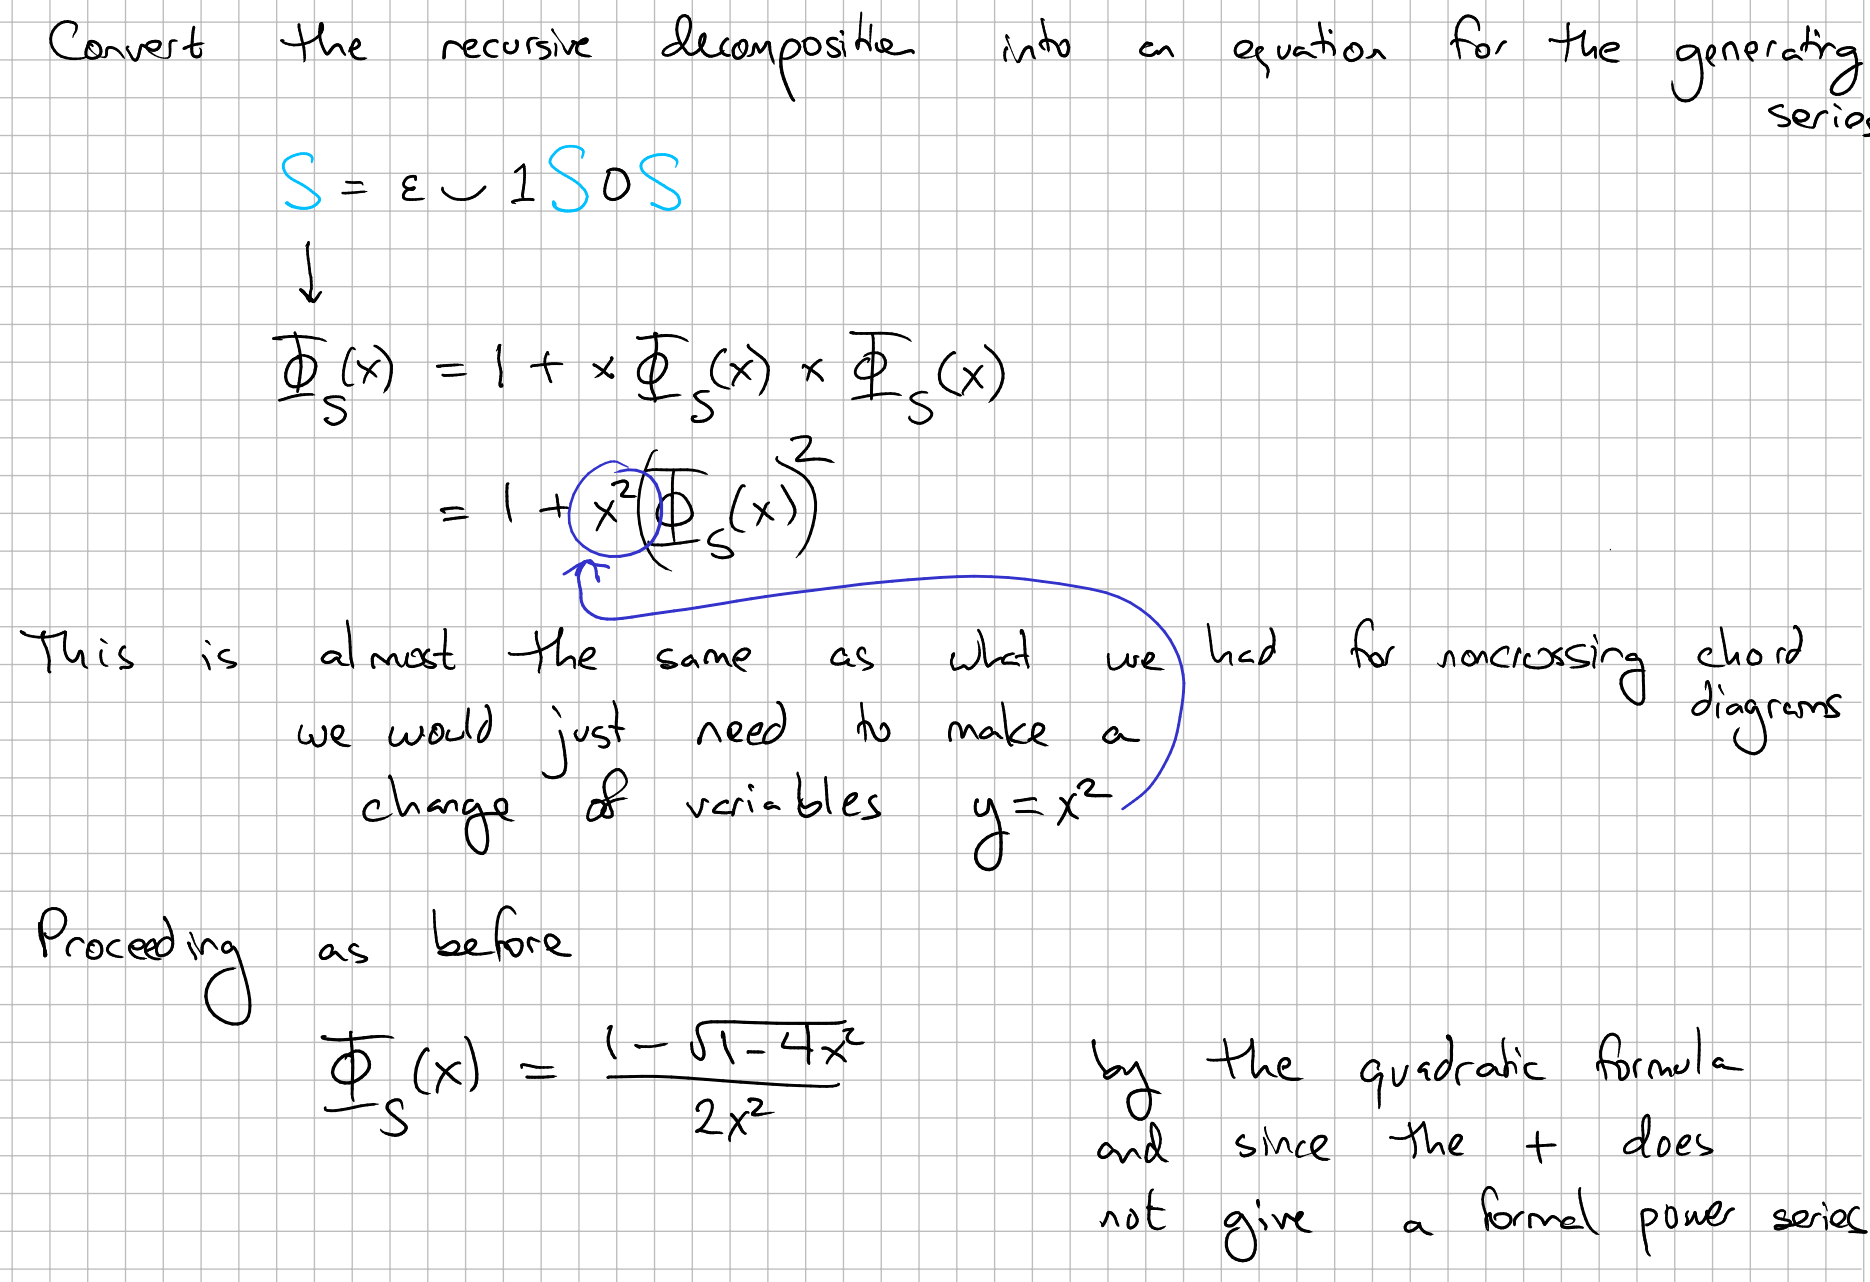 Convert the recursive decomposition into an equation for the generating
series
S = ε ∪ 1 S 0 S
↓
Φ_S(x) = 1 + x Φ_S(x) x Φ_S(x)
= 1 + x²(Φ_S(x))²
This is almost the same as what we had for noncrossing chord
diagrams
we would just need to make a
change of variables y = x²
Proceeding as before
Φ_S(x) = (1 - √(1-4x²))/(2x²)
by the quadratic formula
and since the + does
not give a formal power series